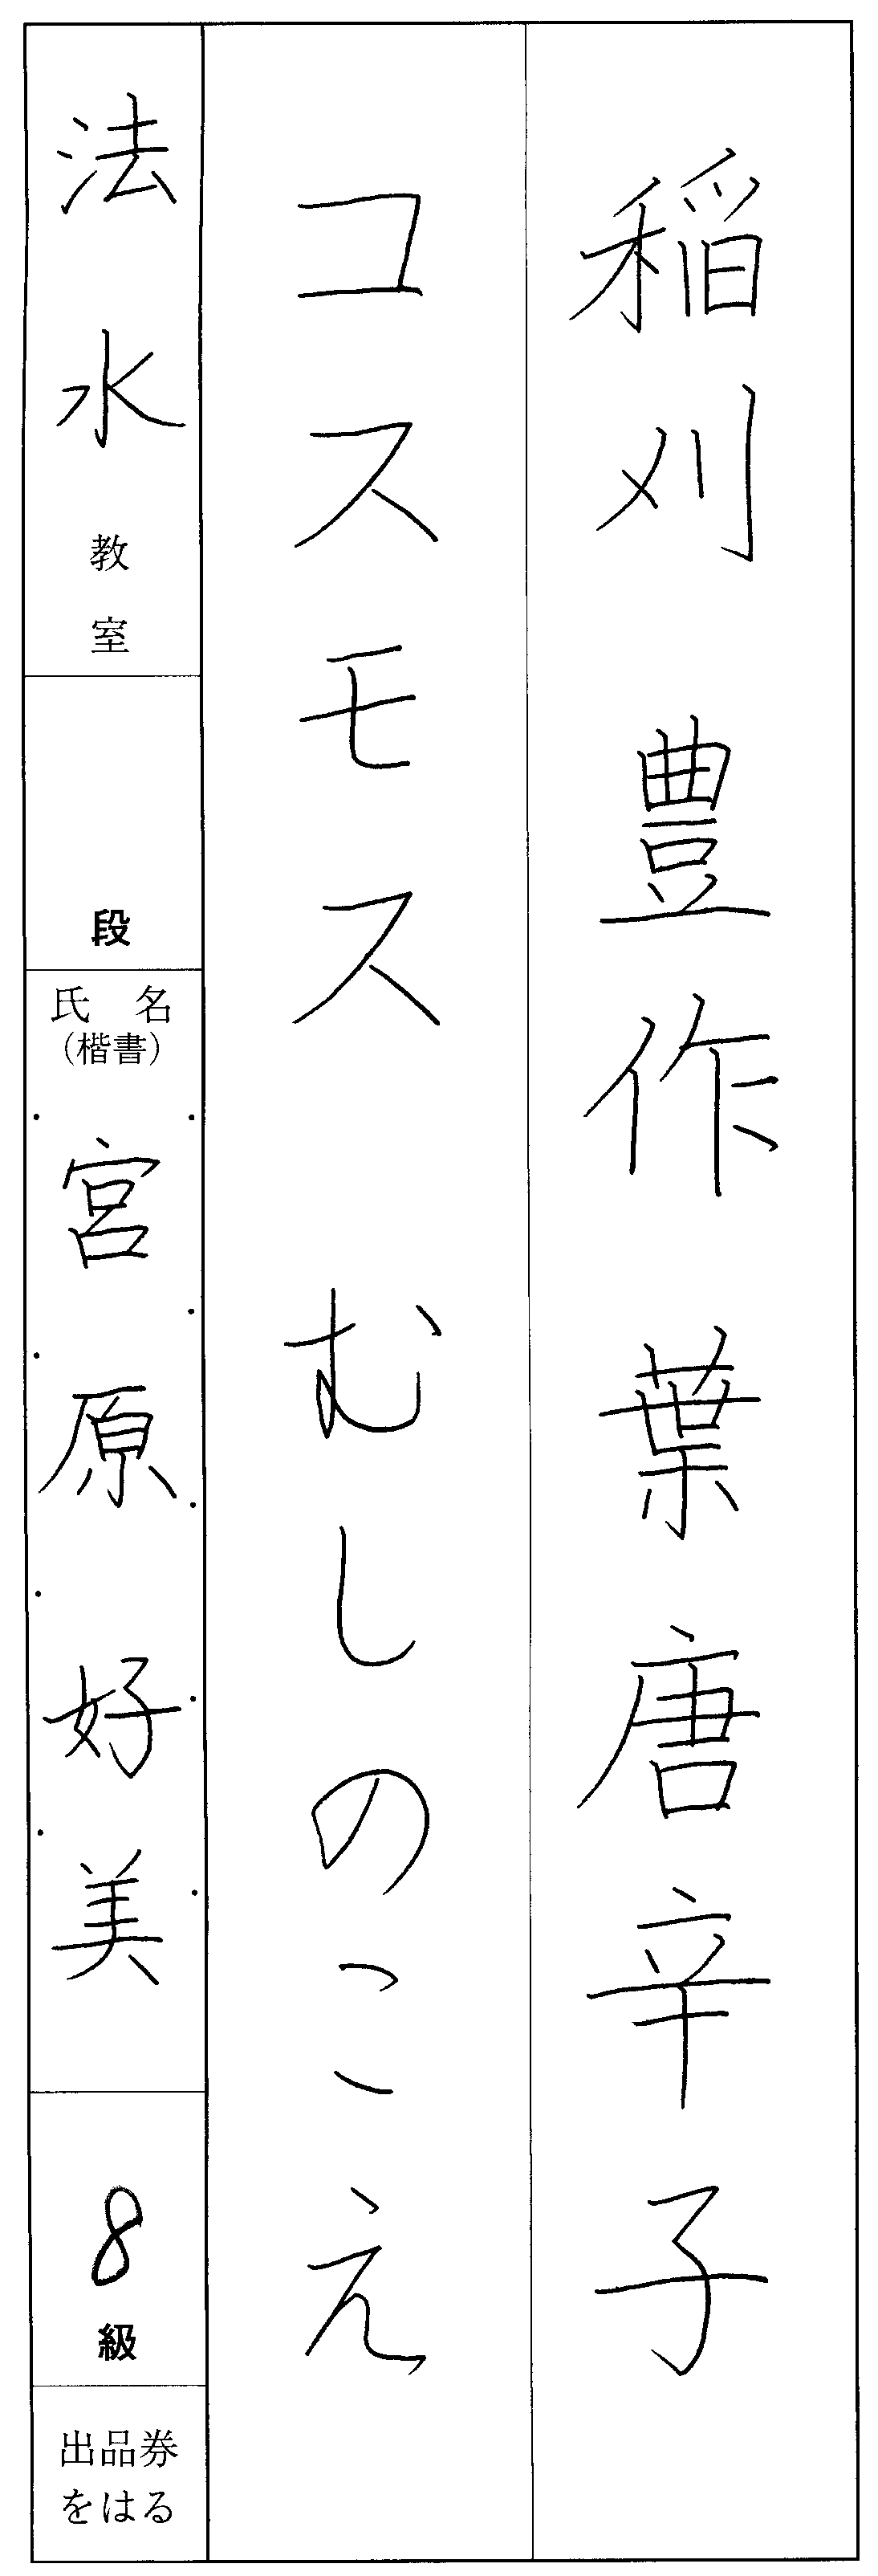 稲刈 豊作 葉唐辛子
コスモス むしのこえ
法水教室
段
氏名
(楷書)
宮原好美
8級
出品券
をはる